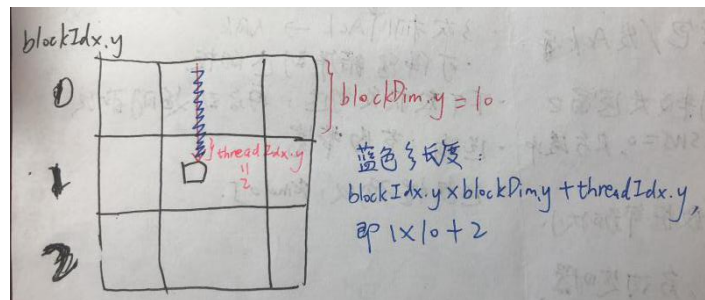 blockIdx.y
0
blockDim.y = 10
threadIdx.y
=
2
1
2
蓝色长度:
blockIdx.y×blockDim.y+threadIdx.y,
即 1×10+2